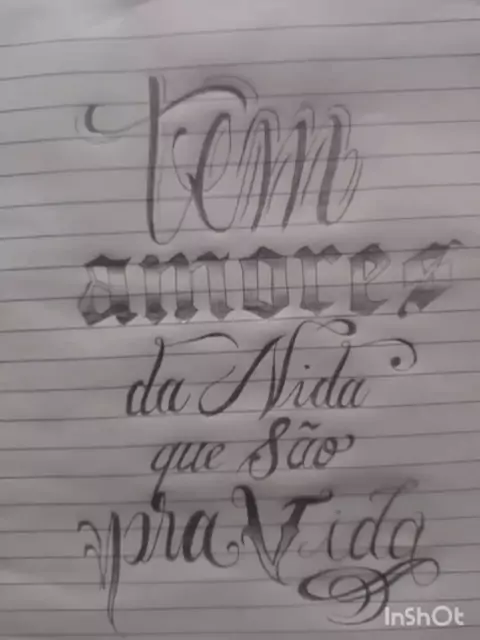 Tem
amores
da Vida
que São
pra Vida
InShOt